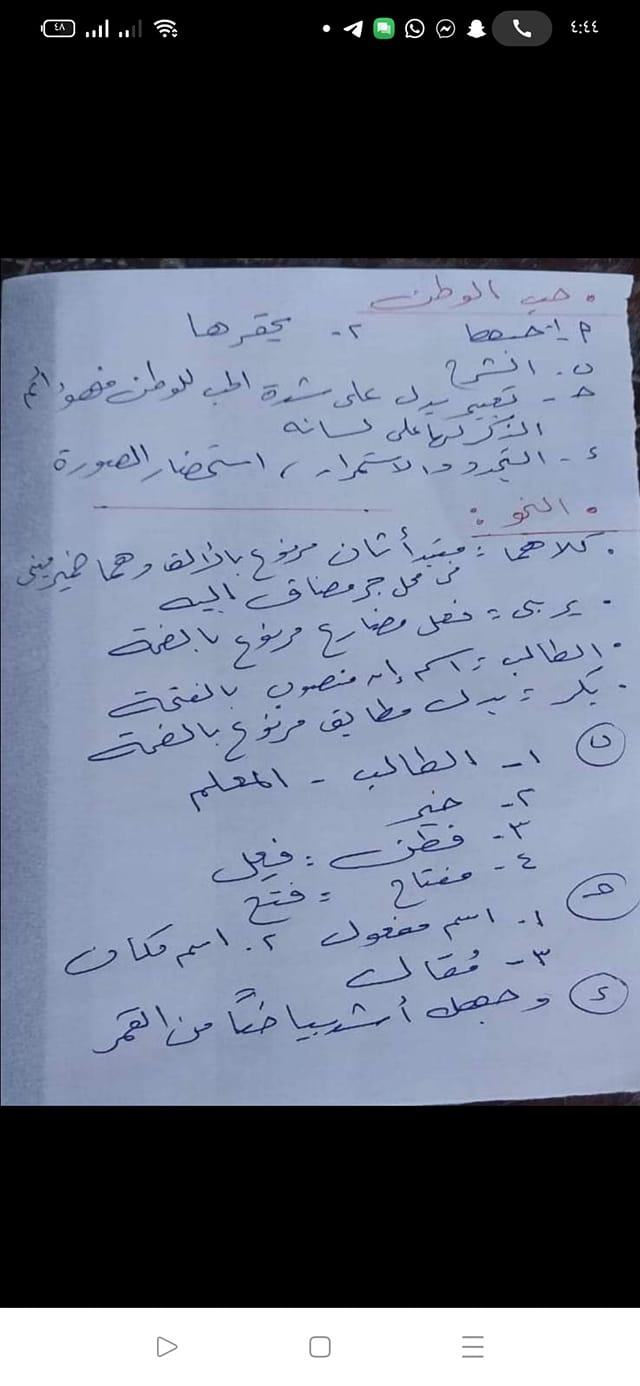 ٤:٤٤
٤٨
• حب الوطن
م ١-
٢- يحقرها
ب. انشرح
حـ - تعبير يدل على شدة الحب للوطن فهو دائم
الذكر لها على لسانه
ء - التجدد والاستمرار، استحضار الصورة
• النحو :
• كلاهما : مبتدأ ثان مرفوع بالألف وهما ضمير مبنى
فى محل جر مضاف اليه
• يربى : فعل مضارع مرفوع بالضمة
• الطالب : اسم إن منصوب بالفتحة
• بكر : بدل مطابق مرفوع بالضمة
ب ١- الطالب - المعلم
٢- خبر
٣- فطن : فعِل
٤- مفتاح : فتح
حـ ١- اسم مفعول ٢. اسم مكان
٣- مُقال
ء وجهك أشد بياضًا من القمر